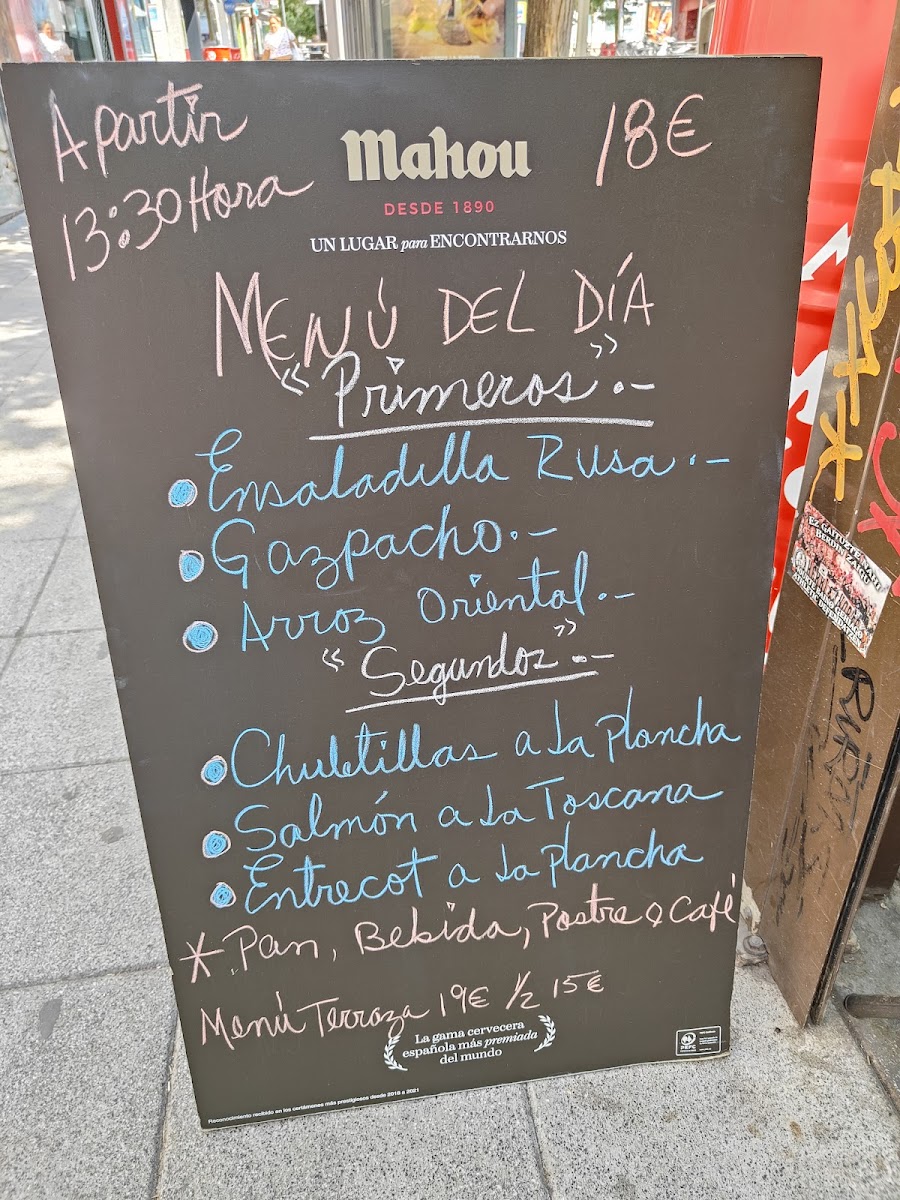 A partir
13:30 Hora
18€
Mahou
DESDE 1890
UN LUGAR para ENCONTRARNOS
MENÚ DEL DÍA
"Primeros".-
Ensaladilla Rusa.-
Gazpacho.-
Arroz Oriental.-
"Segundos".-
Chuletillas a La plancha
Salmón a La Toscana
Entrecot a La plancha
* Pan, Bebida, Postre o Café
Menú Terraza 19€ 1/2 15€
La gama cervecera
española más premiada
del mundo
PEFC
Reconocimiento recibido en los certámenes más prestigiosos desde 2018 a 2021